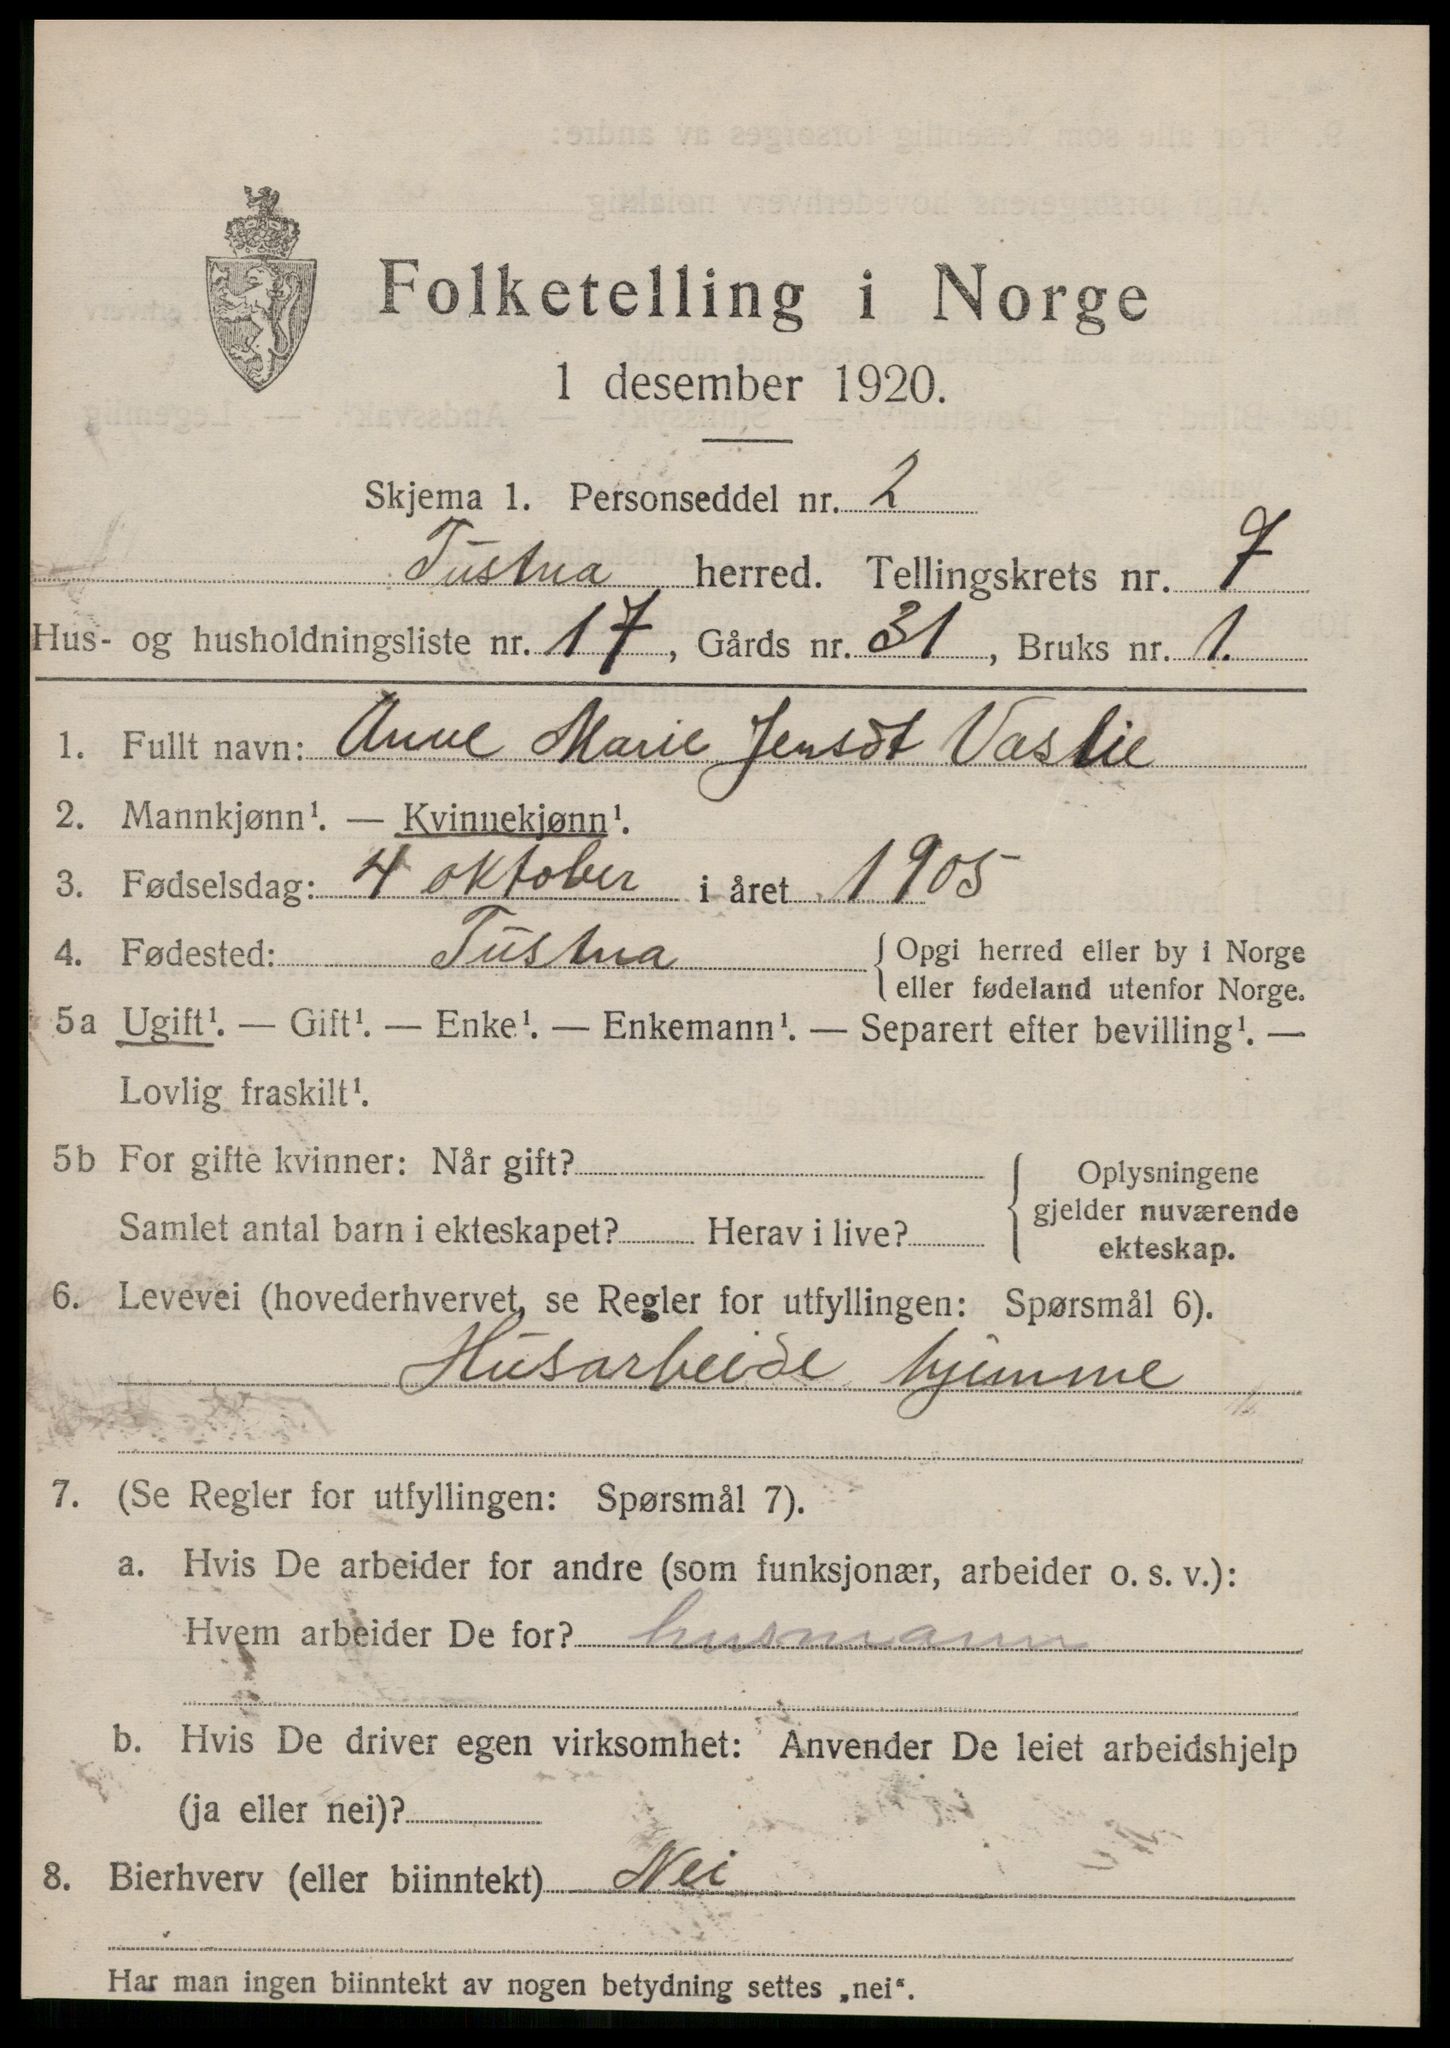 Folketelling i Norge
1 desember 1920.
Skjema 1. Personseddel nr. 2
Tustna herred. Tellingskrets nr. 7
Hus- og husholdningsliste nr. 17, Gårds nr. 31, Bruks nr. 1.
1. Fullt navn: Anne Marie Jensdt Vaslie
2. Mannkjønn¹. — Kvinnekjønn¹.
3. Fødselsdag: 4 oktober i året 1905
4. Fødested: Tustna { Opgi herred eller by i Norge
eller fødeland utenfor Norge.
5a Ugift¹. — Gift¹. — Enke¹. — Enkemann¹. — Separert efter bevilling¹. —
Lovlig fraskilt¹.
5b For gifte kvinner: Når gift?
Samlet antal barn i ekteskapet? Herav i live?
{ Oplysningene
gjelder nuværende
ekteskap.
6. Levevei (hovederhvervet, se Regler for utfyllingen: Spørsmål 6).
Husarbeide hjemme
7. (Se Regler for utfyllingen: Spørsmål 7).
a. Hvis De arbeider for andre (som funksjonær, arbeider o. s. v.):
Hvem arbeider De for? husmann
b. Hvis De driver egen virksomhet: Anvender De leiet arbeidshjelp
(ja eller nei)?
8. Bierhverv (eller biinntekt) Nei
Har man ingen biinntekt av nogen betydning settes „nei“.